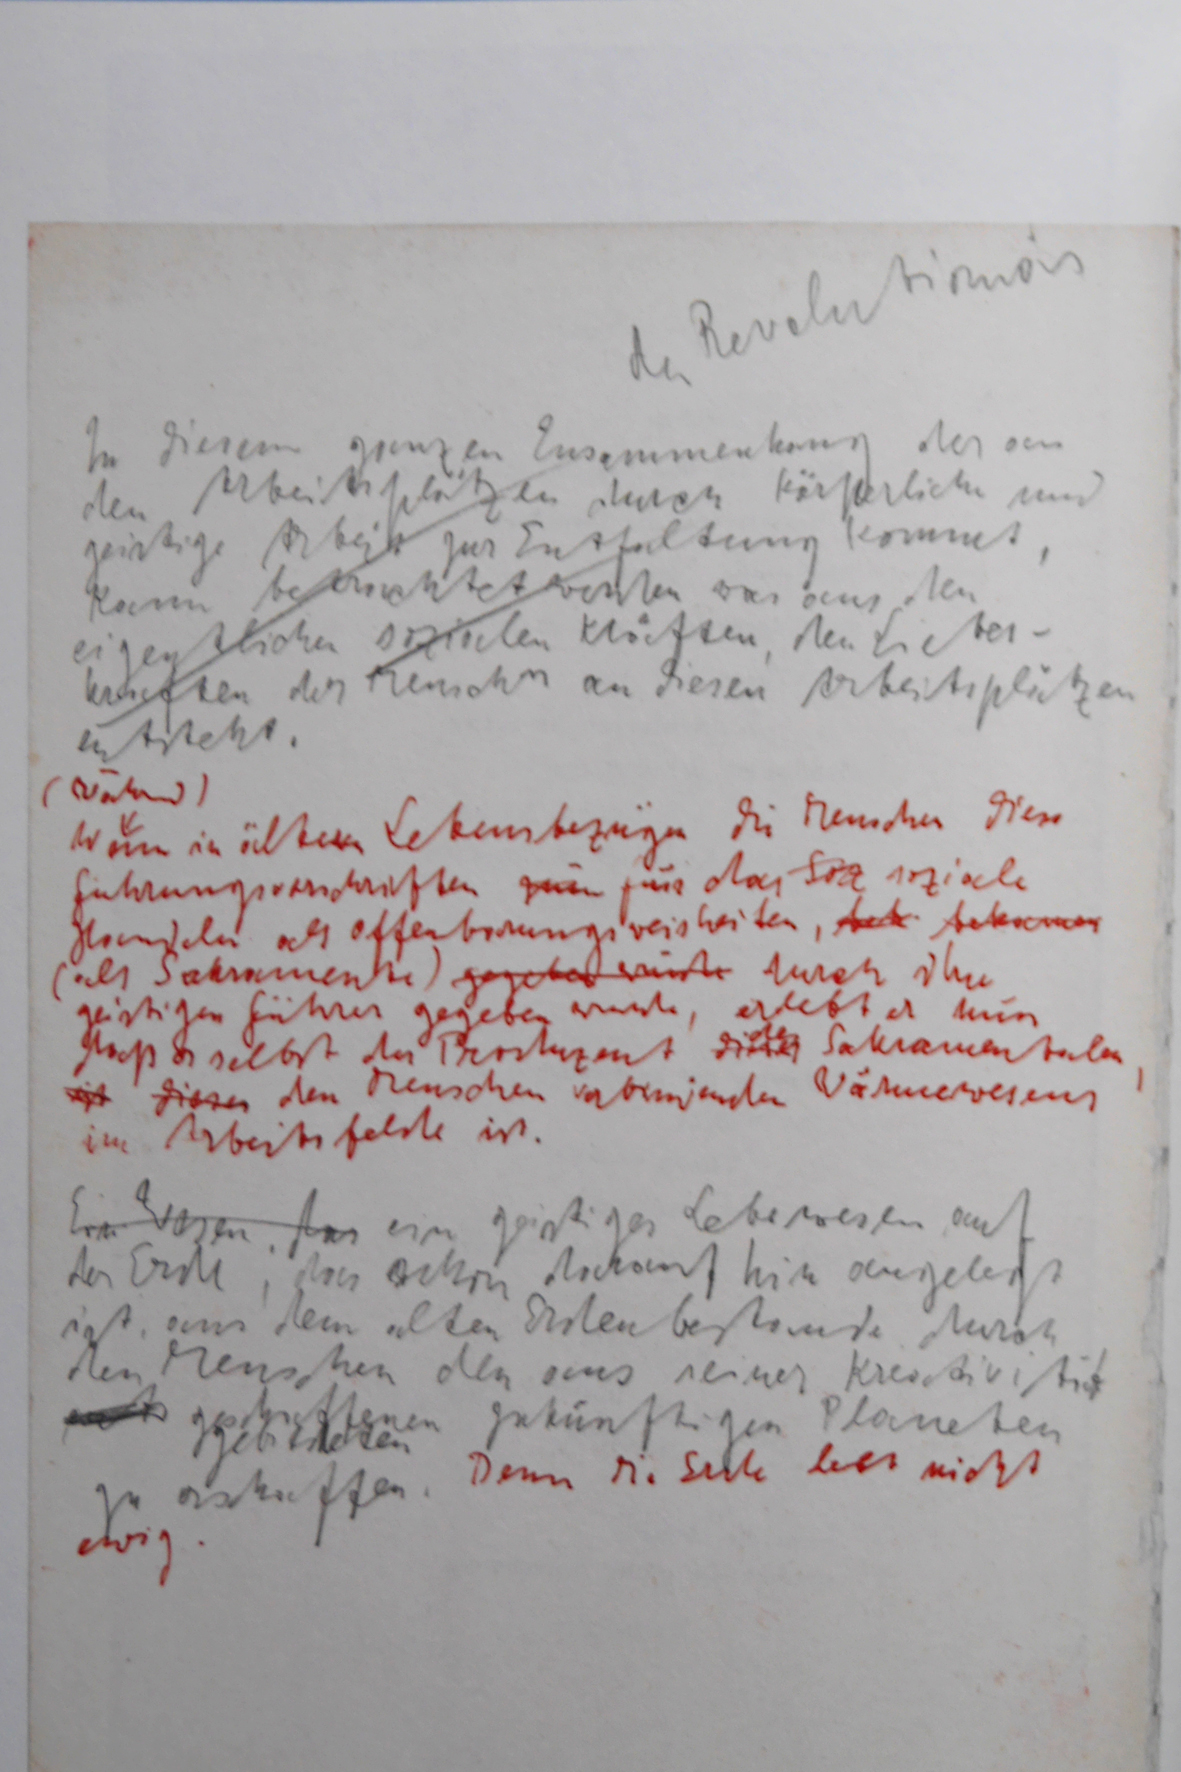 der Revolutionär
In diesem ganzen Zusammenhang der an
den Arbeitsplätzen durch körperliche und
geistige Arbeit zur Entfaltung kommt,
kann betrachtet werden was aus den
eigentlichen sozialen Kräften, den Liebes-
kräften des Menschen an diesen Arbeitsplätzen
entsteht.
(während)
Wenn in älteren Lebensbezügen die Menschen diese
Führungsvorschriften zum für das Soz soziale
Handeln als Offenbarungsweisheiten, bekamen
(als Sakramente) gegeben wurde durch ihre
geistigen Führer gegeben wurde, erlebt er nun
daß er selbst der Produzent dieses des Sakramentalen,
ist dieses den Menschen verbindenden Wärmewesens
im Arbeitsfelde ist.
Ein Wesen, das ein geistiges Lebewesen auf
der Erde, das schon darauf hin angelegt
ist, aus dem alten Erdenbestande durch
den Menschen den aus seiner Kreativität
geschaffenen zukünftigen Planeten
zu erschaffen. Denn die Erde lebt nicht
ewig.